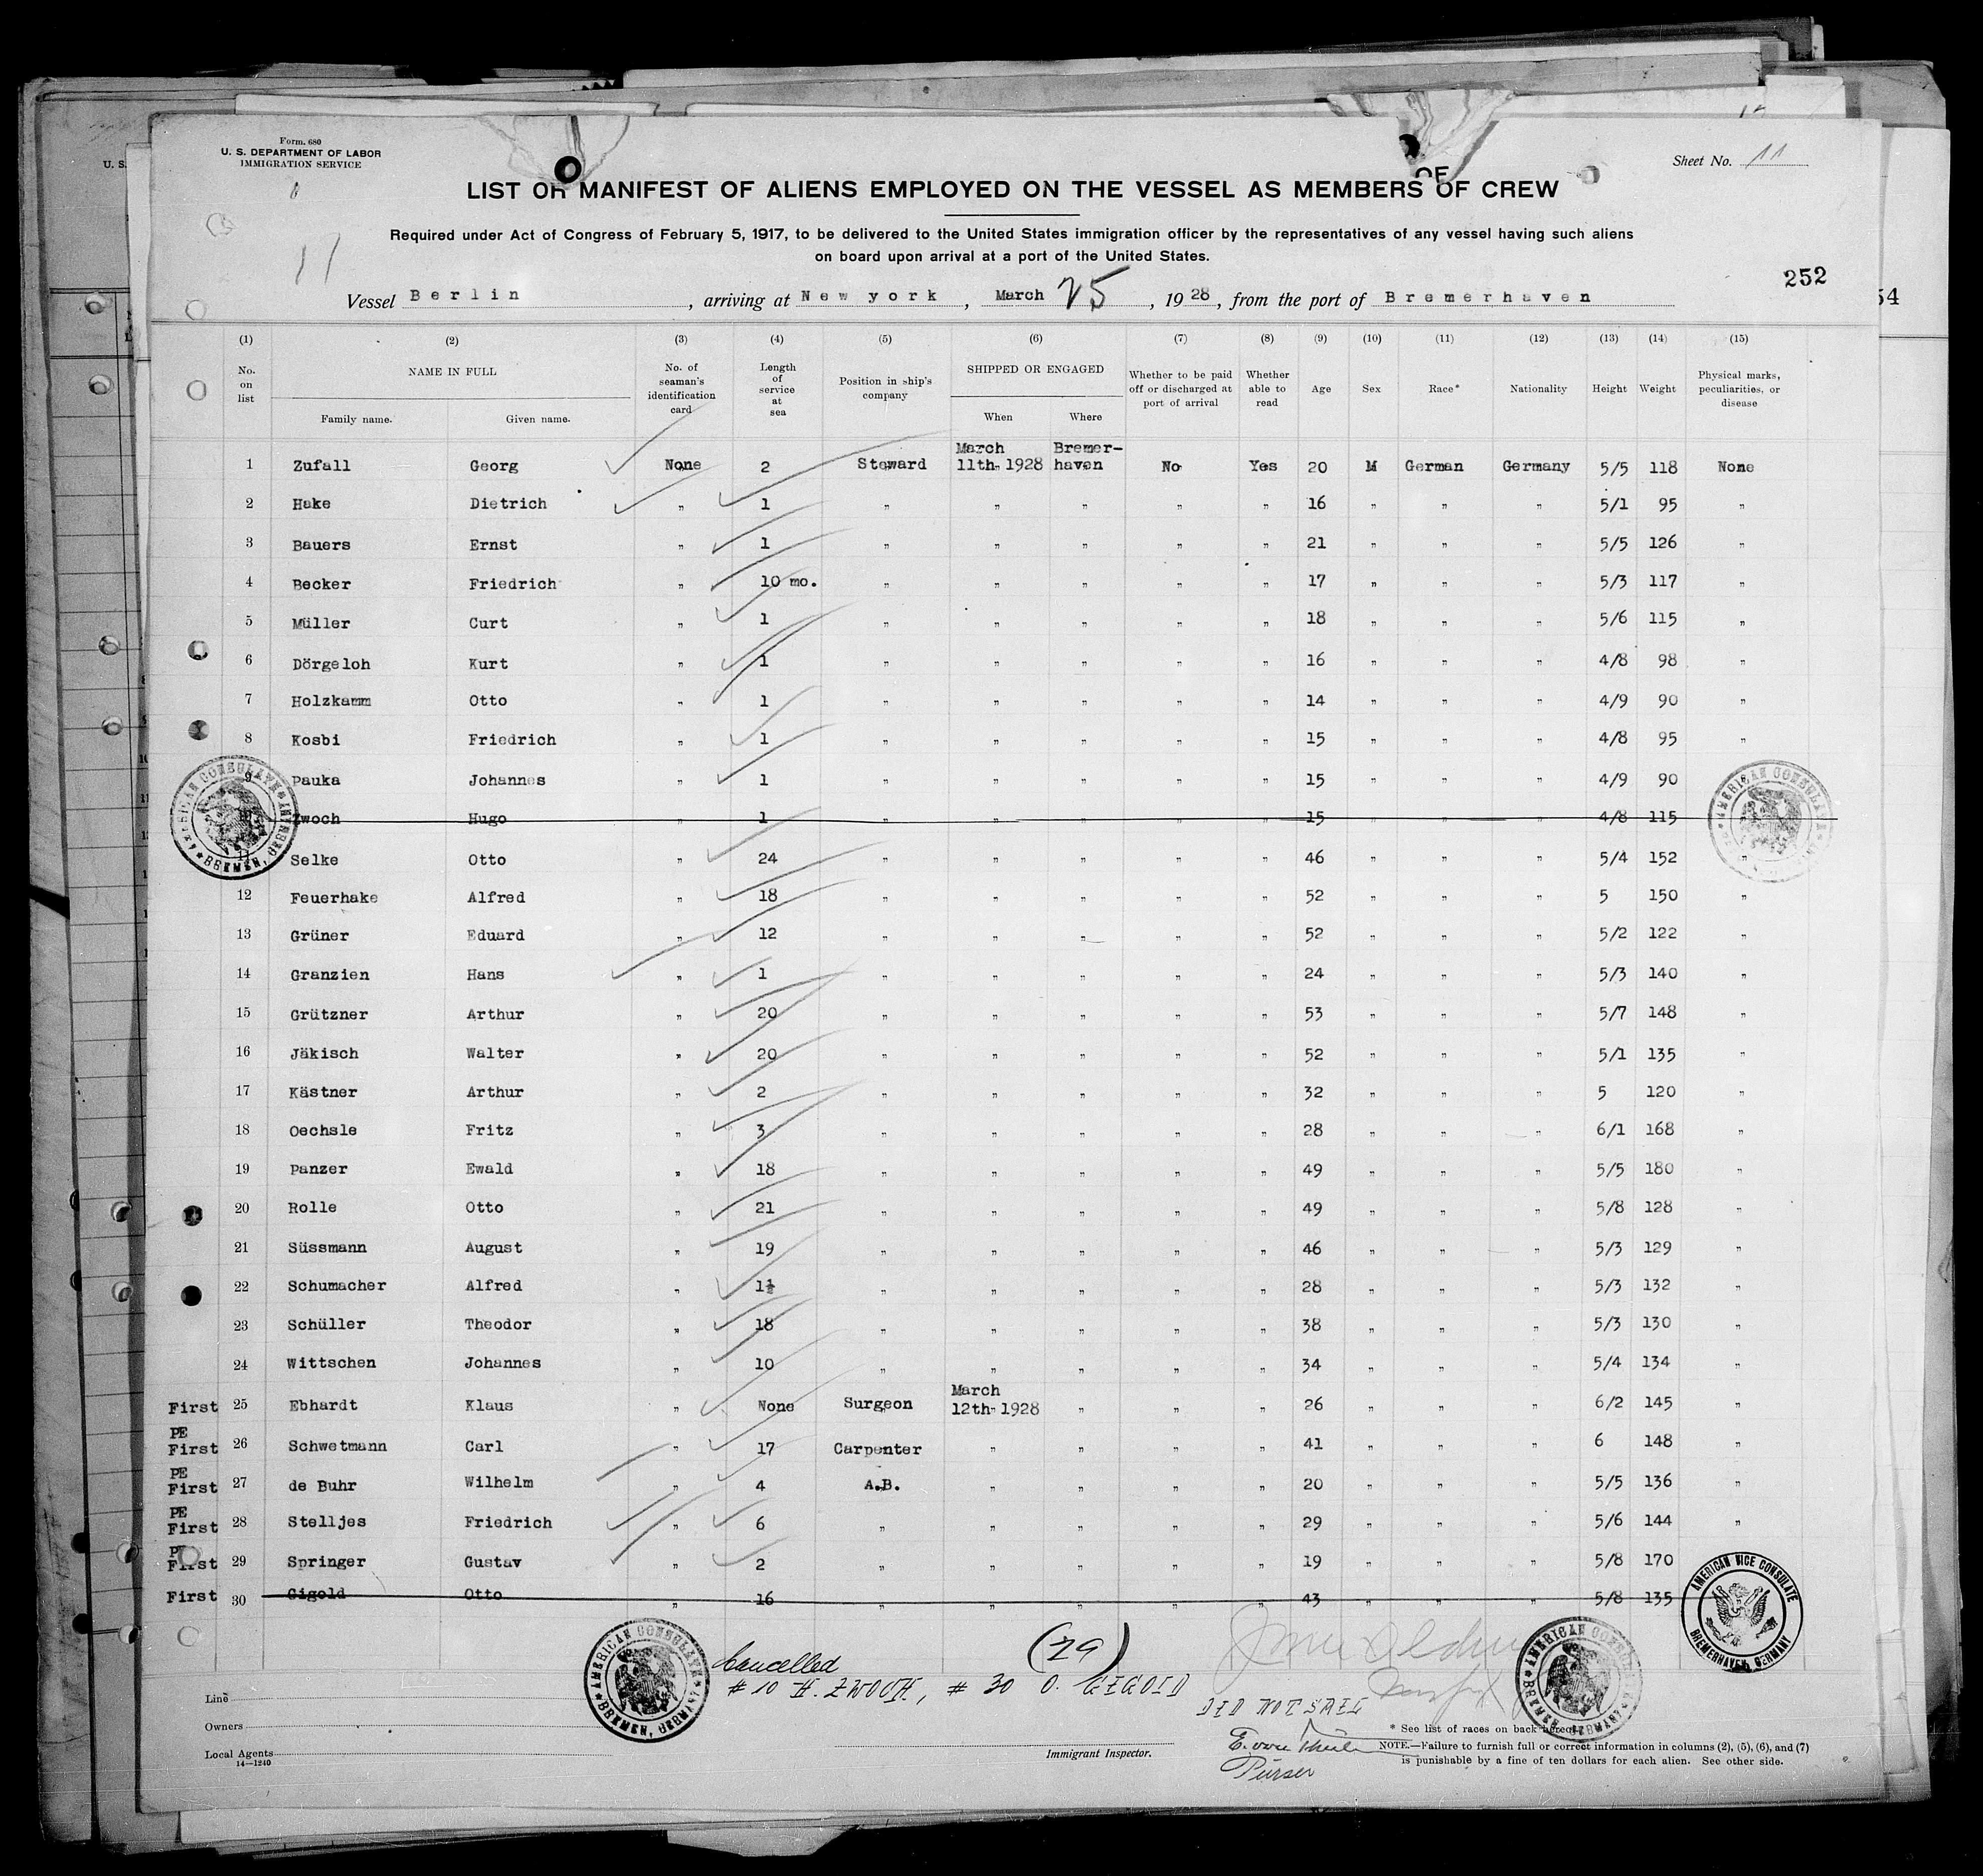 Form. 680
U. S. DEPARTMENT OF LABOR
IMMIGRATION SERVICE
Sheet No. 11
LIST OR MANIFEST OF ALIENS EMPLOYED ON THE VESSEL AS MEMBERS OF CREW
Required under Act of Congress of February 5, 1917, to be delivered to the United States immigration officer by the representatives of any vessel having such aliens
on board upon arrival at a port of the United States.
11
252
54
Vessel Berlin, arriving at New york, March 25, 1928, from the port of Bremerhaven
(1) (2) (3) (4) (5) (6) (7) (8) (9) (10) (11) (12) (13) (14) (15)
No. on list NAME IN FULL Family name. Given name. No. of seaman's identification card Length of service at sea Position in ship's company SHIPPED OR ENGAGED When Where Whether to be paid off or discharged at port of arrival Whether able to read Age Sex Race* Nationality Height Weight Physical marks, peculiarities, or disease
1 Zufall Georg None 2 Steward March 11th-1928 Bremer-haven No Yes 20 M German Germany 5/5 118 None
2 Hake Dietrich " 1 " " " " " 16 " " " 5/1 95 "
3 Bauers Ernst " 1 " " " " " 21 " " " 5/5 126 "
4 Becker Friedrich " 10 mo. " " " " " 17 " " " 5/3 117 "
5 Müller Curt " 1 " " " " " 18 " " " 5/6 115 "
6 Dörgeloh Kurt " 1 " " " " " 16 " " " 4/8 98 "
7 Holzkamm Otto " 1 " " " " " 14 " " " 4/9 90 "
8 Kosbi Friedrich " 1 " " " " " 15 " " " 4/8 95 "
9 Pauka Johannes " 1 " " " " " 15 " " " 4/9 90 "
10 Zwoch Hugo " 1 " " " " " 15 " " " 4/8 115 "
11 Selke Otto " 24 " " " " " 46 " " " 5/4 152 "
12 Feuerhake Alfred " 18 " " " " " 52 " " " 5 150 "
13 Grüner Eduard " 12 " " " " " 52 " " " 5/2 122 "
14 Granzien Hans " 1 " " " " " 24 " " " 5/3 140 "
15 Grützner Arthur " 20 " " " " " 53 " " " 5/7 148 "
16 Jäkisch Walter " 20 " " " " " 52 " " " 5/1 135 "
17 Kästner Arthur " 2 " " " " " 32 " " " 5 120 "
18 Oechsle Fritz " 3 " " " " " 28 " " " 6/1 168 "
19 Panzer Ewald " 18 " " " " " 49 " " " 5/5 180 "
20 Rolle Otto " 21 " " " " " 49 " " " 5/8 128 "
21 Süssmann August " 19 " " " " " 46 " " " 5/3 129 "
22 Schumacher Alfred " 1½ " " " " " 28 " " " 5/3 132 "
23 Schüller Theodor " 18 " " " " " 38 " " " 5/3 130 "
24 Wittschen Johannes " 10 " " " " " 34 " " " 5/4 134 "
First 25 Ebhardt Klaus " None Surgeon March 12th-1928 " " " 26 " " " 6/2 145 "
PE First 26 Schwetmann Carl " 17 Carpenter " " " " 41 " " " 6 148 "
PE First 27 de Buhr Wilhelm " 4 A.B. " " " " 20 " " " 5/5 136 "
PE First 28 Stelljes Friedrich " 6 " " " " " 29 " " " 5/6 144 "
PE First 29 Springer Gustav " 2 " " " " " 19 " " " 5/8 170
First 30 Gigold Otto " 16 " " " " " 43 " " " 5/8 135
AMERICAN CONSULATE BREMEN, GERMANY
AMERICAN VICE CONSULATE BREMERHAVEN, GERMANY
(29)
Cancelled
# 10 H. ZWOCH, # 30 O. GIGOLD
DID NOT SAIL
Purser
Line
Owners
Local Agents
14—1240
Immigrant Inspector.
* See list of races on back hereof.
NOTE.—Failure to furnish full or correct information in columns (2), (5), (6), and (7)
is punishable by a fine of ten dollars for each alien. See other side.